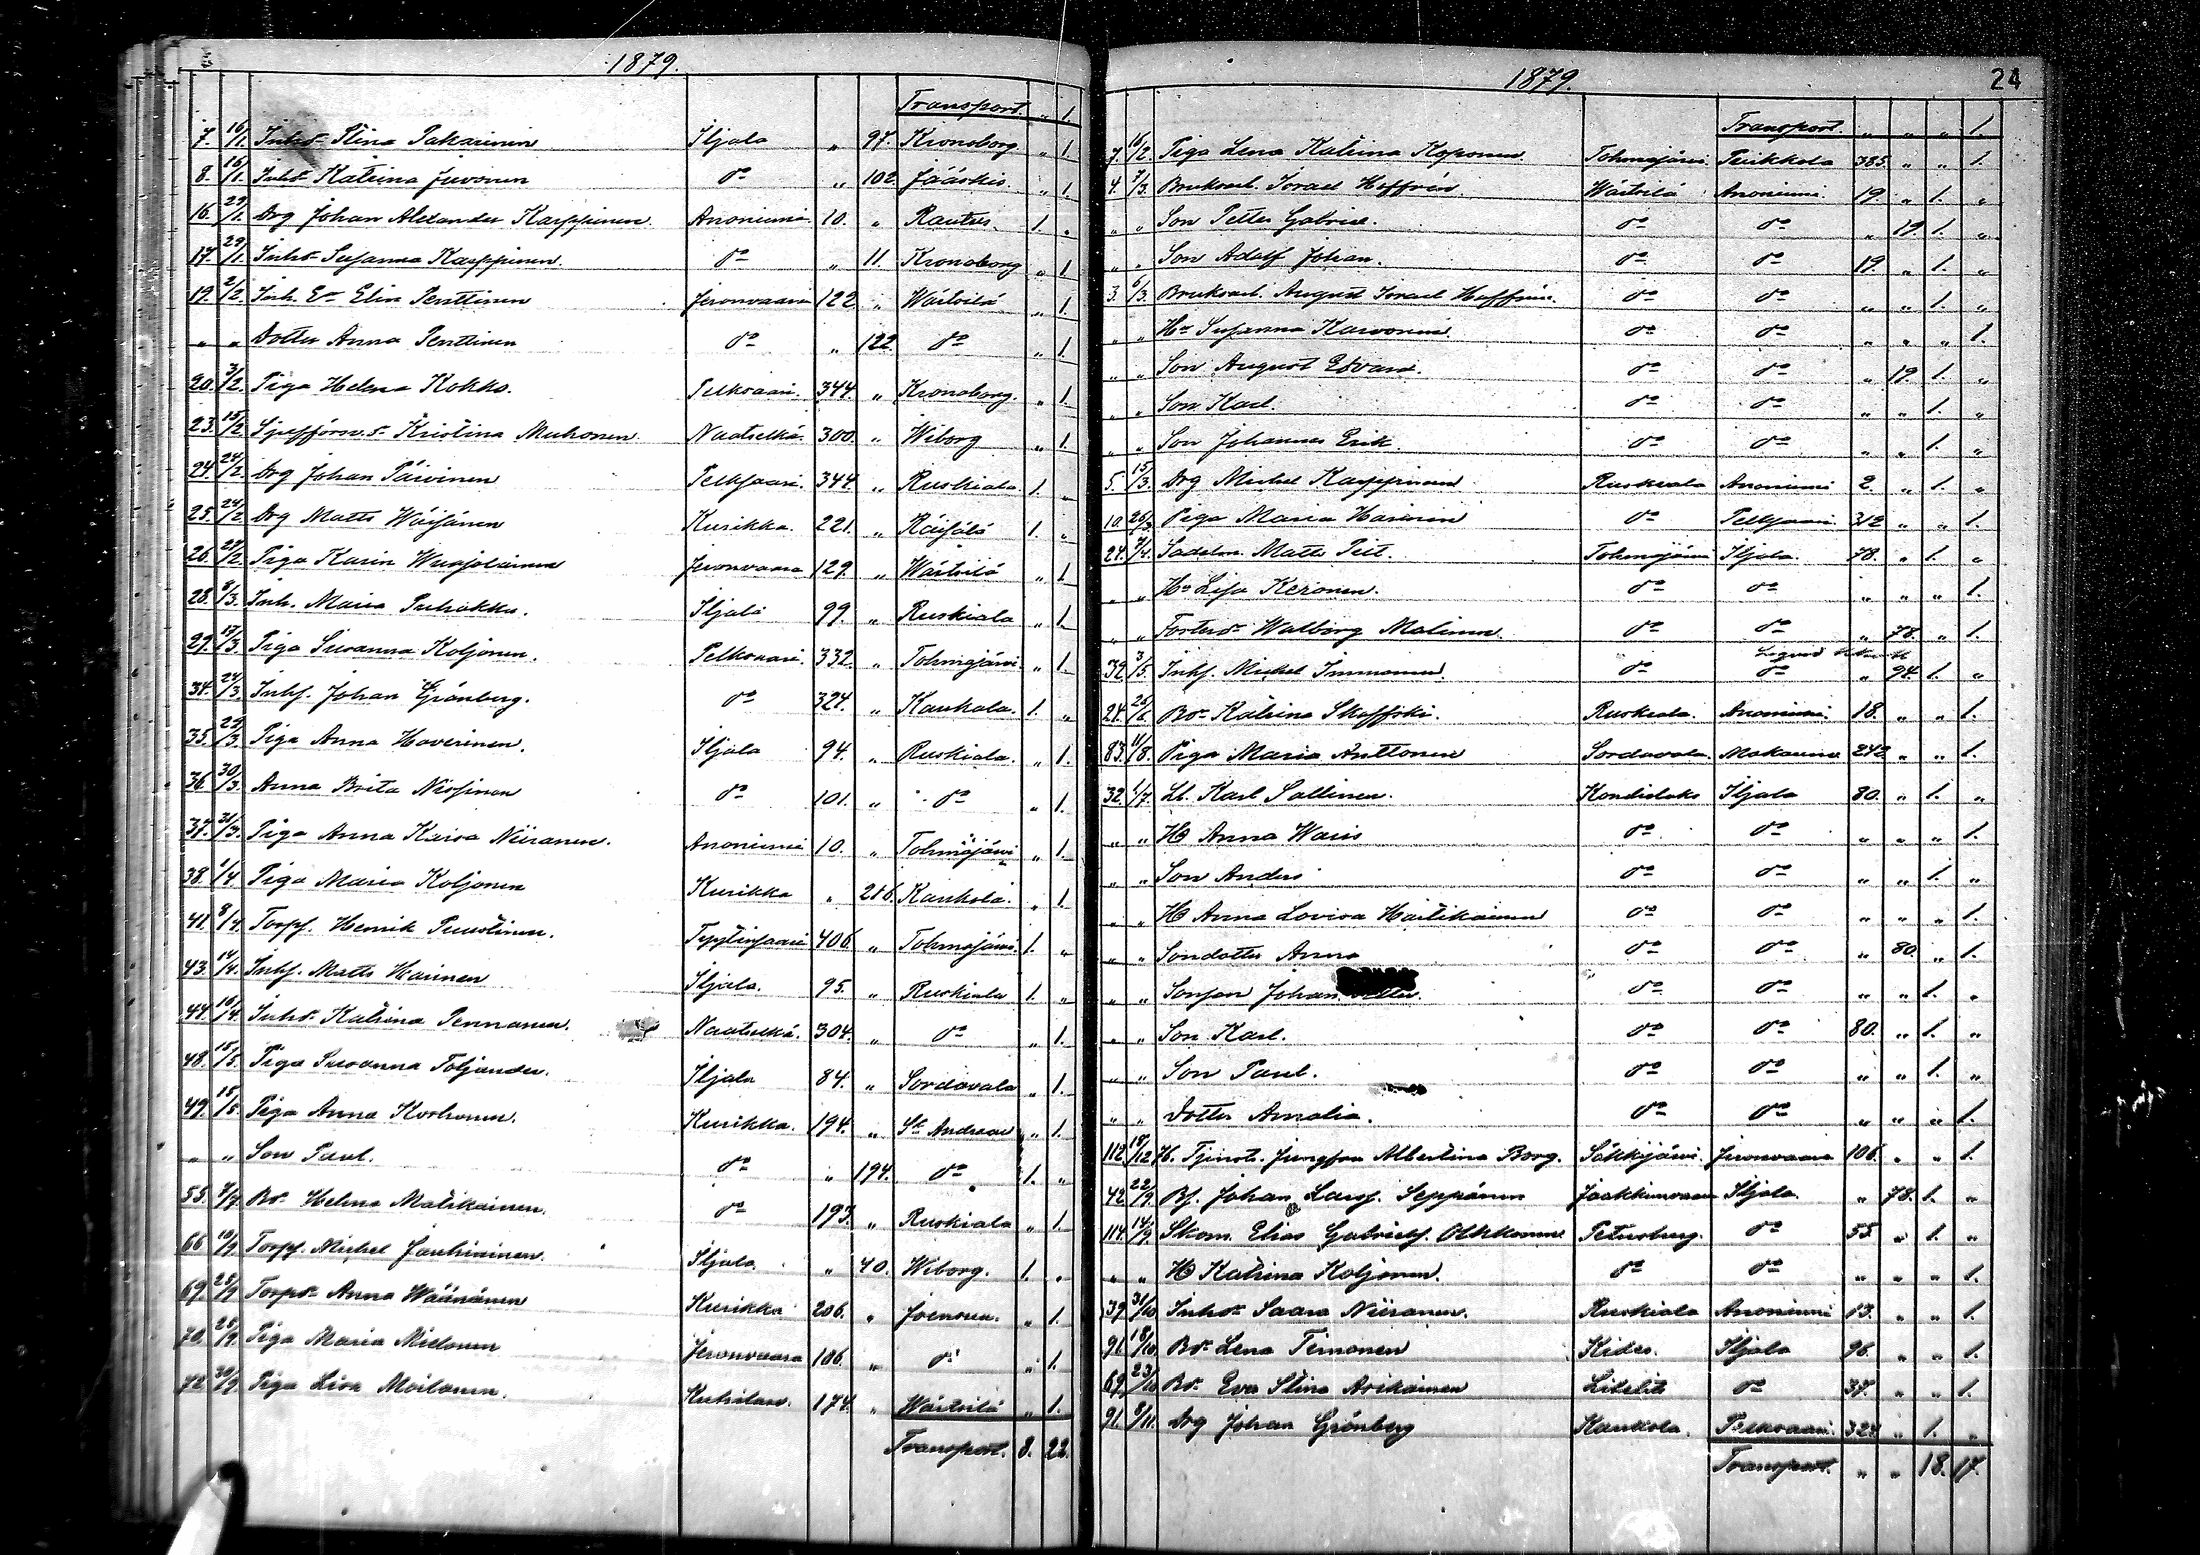 1879.
Transport. „ 1.
7. 16/1. Inhd. Stina Pakarinen Iljala „ 97. Kronoborg „ 1.
8. 16/1. Inhd. Katrina Juvonen do „ 102. Jääskis. „ 1.
16. 29/1. Drg Johan Alexander Karppinen. Anoniemi 10. „ Rautus. 1. „
17. 29/1. Inhd. Susanna Karppinen. do „ 11. Kronoborg „ 1.
19. 2/2. Inh. Ea Elin Penttinen Jeronvaara 122. „ Wärtsilä „ 1.
„ „ Dotter Anna Penttinen do „ 122. do „ 1.
20. 3/2. Piga Helena Kokko. Pelkvaari. 344. „ Kronoborg. „ 1.
23. 15/2. Kristina Muhonen Naatselkä. 300. „ Wiborg „ 1.
24. 24/2. Drg Johan Päivinen Pelkjaari. 344. „ Ruskiala 1. „
25. 24/2. Drg Matts Wäisänen Kurikka. 221. „ Räisälä 1. „
26. 27/2. Piga Karin Jeronvaara 129. „ Wärtsilä „ 1.
28. 8/3. Inh. Maria Puhakka. Iljala 99. „ Ruskiala „ 1.
29. 17/3. Piga Susanna Koljonen. Pelkvaari. 332. „ Tohmajärvi „ 1.
34. 24/3. Inhs. Johan Grönberg. do 324. „ Kaukola. 1. „
35. 29/3. Piga Anna Haverinen. Iljala 94. „ Ruskiala. „ 1.
36. 30/3. Anna Brita Nissinen do 101. „ do „ 1.
37. 31/3. Piga Anna Kaisa Niiranen. Anoniemi 10. „ Tohmajärvi „ 1.
38. 1/4. Piga Maria Koljonen Kurikka „ 216. Kaukola. „ 1.
41. 8/4. Torps. Henrik Puustinen. 406. „ Tohmajärvi. 1. „
43. 14/4. Inhs. Matts Harinen Iljala. 95. „ Ruskiala 1. „
44. 16/4. Inhd. Katrina Pennanen. Naatselkä. 304. „ do „ 1.
48. 15/5. Piga Susanna Toljander. Iljala 84. „ Sordavala „ 1.
49. 15/5. Piga Anna Korhonen. Kurikka. 194. „ St Andreae „ 1.
„ „ Son Paul. do „ 194. do 1. „
55. 7/7. Bd. Helena Matikainen. do 193. „ Ruskiala „ 1.
66. 10/9. Torps. Michel Jauhiainen. Iljala. „ 40. Wiborg. 1. „
69. 28/9. Torpd. Anna Wäänänen Kurikka 206. „ Joensuu. „ 1.
70. 28/9. Piga Maria Mielonen Jeronvaara 106. „ do „ 1.
72. 30/9. Piga Lisa Moilanen. Kuhilas. 174. „ Wärtsilä „ 1.
Transport. 8. 22.
1879. 24
Transport. „ „ „ 1.
7. 16/2. Piga Lena Katrina Koponen Tohmajärvi Peikkola 385. „ „ 1.
4. 7/3. Bruksarb. Israel Hoffrén Wärtsilä Anoniemi. 19. „ 1. „
„ „ Son Petter Gabriel. do do „ 19. 1. „
„ „ Son Adolf Johan. do do 19. „ 1. „
3. 6/3. Bruksarb. August Israel Hoffrén. do do „ „ 1. „
„ „ Hu Susanna Karvonen. do do „ „ „ 1.
„ „ Son August Edvard. do do „ 19. 1. „
„ „ Son Karl. do do „ „ 1. „
„ „ Son Johannes Erik. do do „ „ 1. „
5. 15/3. Drg Michel Karppinen Ruskiala Anoniemi 2. „ 1. „
10. 26/3. Piga Maria Harinen do Pelkjaari 312 „ „ 1.
24. 7/4. Sadelm. Matts Piit. Tohmajärvi Iljala. 78. „ 1. „
„ „ Hu Lisa Keronen. do do „ „ „ 1.
„ „ Fosterd. Walborg Malinen. do do „ 78. „ 1.
32. 3/5. Inhs. Michel Immonen. do do „ 94. 1. „
24. 26/6. Bd. Katrina Skoffski. Ruskiala. Anoniemi. 18. „ „ 1.
83. 11/8. Piga Maria Anttonen Sordavala. 242 „ „ 1.
32. 1/7. Lb. Karl Sallinen. Kondislaks Iljala 80. „ 1. „
„ „ Hu Anna Waris do do „ „ „ 1.
„ „ Son Anders do do „ „ 1. „
„ „ Hu Anna Lovisa Haitikainen do do „ „ „ 1.
„ „ Sondotter Anna do do „ 80. „ 1.
„ „ Sonson Johan do do „ „ 1. „
„ „ Son Karl. do do 80. „ 1. „
„ „ Son Paul. do do „ „ 1. „
„ „ Dotter Amalia. do do „ „ „ 1.
112. 18/12 Tjenst. Jungfru Albertina Borg. Säkkijärvi. Jeronvaara 106. „ „ 1.
42. 22/9. Bs. Johan Larss. Seppänen Jaakkimvaara Iljala. „ 78. 1. „
114. 14/9. Skom. Elias Gabrielss. Olkkonen Petersburg. do 55. „ 1. „
„ „ Hu Katrina Koljonen. do do „ „ „ 1.
39. 31/10 Inhd. Saara Niiranen. Ruskiala Anoniemi 13. „ „ 1.
91. 18/10. Bd. Lena Timonen Kides. Iljala 96. „ „ 1.
69. 23/10 Bd. Eva Stina Asikainen Libelits do 37. „ „ 1.
91. 8/11. Drg Johan Grönberg Kaukola. Pelkvaari. 324 „ 1. „
Transport. „ „ 18. 17.